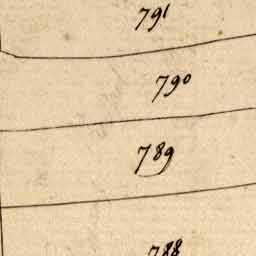 791
790
789
788